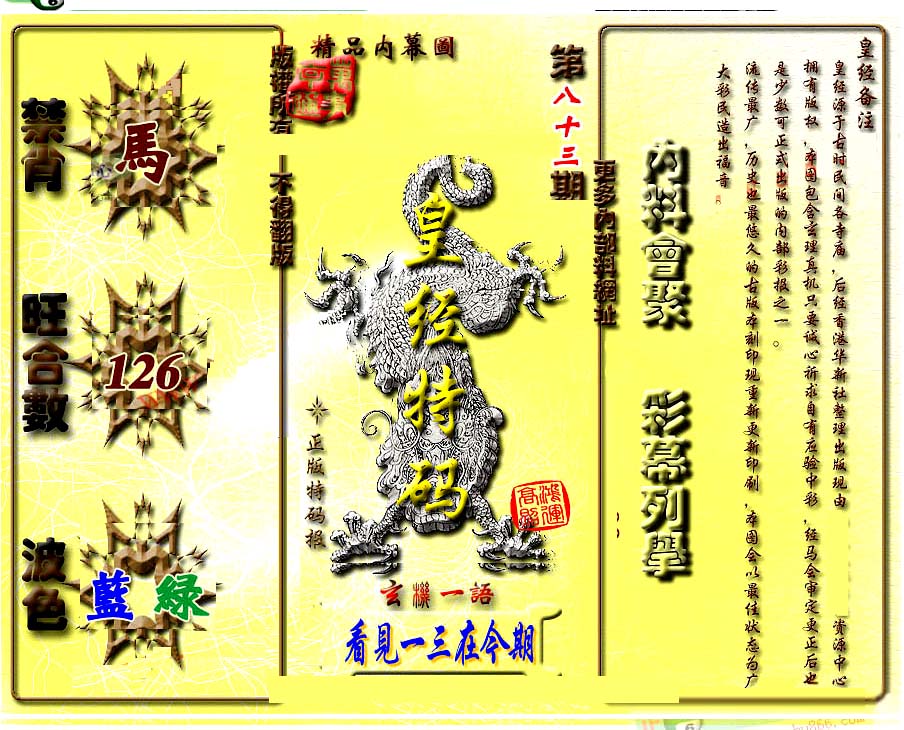 精品内幕圖
版權所有
不得翻版
第八十三期
禁肖
馬
旺合數
126
波色
藍 綠
皇经特码
正版特码报
鴻運高照
玄機一語
看見一三在今期
更多內部料網址
内料會聚
彩幕列舉
皇经备注
皇经源于古时民间各寺庙，后经香港华新社整理出版现由
资源中心
拥有版权，本图包含玄理真机只要诚心祈求自有应验中彩，经马会审定更正后也
是少数可正式出版的内部彩报之一。
流传最广，历史也最悠久的古版本刻印现重新更新印刷，本图会以最佳状态为广
大彩民造出福音